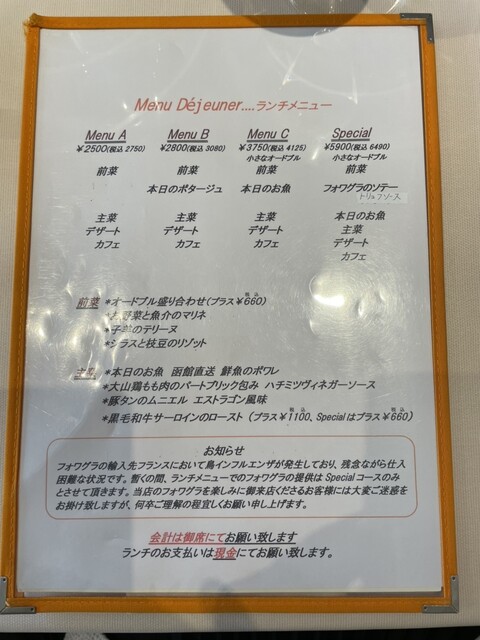 Menu Déjeuner....ランチメニュー
Menu A Menu B Menu C Special
￥2500(税込 2750) ￥2800(税込 3080) ￥3750(税込 4125) ￥5900(税込 6490)
小さなオードブル 小さなオードブル
前菜 前菜 前菜 前菜
本日のポタージュ 本日のお魚 フォワグラのソテー
トリュフソース
主菜 主菜 主菜 本日のお魚
デザート デザート デザート 主菜
カフェ カフェ カフェ デザート
カフェ
前菜 *オードブル盛り合わせ(プラス税込￥660)
*お野菜と魚介のマリネ
*子羊のテリーヌ
*シラスと枝豆のリゾット
主菜 *本日のお魚 函館直送 鮮魚のポワレ
*大山鶏もも肉のパートブリック包み ハチミツヴィネガーソース
*豚タンのムニエル エストラゴン風味
*黒毛和牛サーロインのロースト (プラス税込￥1100、Specialはプラス税込￥660)
お知らせ
フォワグラの輸入先フランスにおいて鳥インフルエンザが発生しており、残念ながら仕入
困難な状況です。暫くの間、ランチメニューでのフォワグラの提供は Special コースのみ
とさせて頂きます。当店のフォワグラを楽しみに御来店くださるお客様には大変ご迷惑を
お掛け致しますが、何卒ご理解の程宜しくお願い申し上げます。
会計は御席にてお願い致します
ランチのお支払いは現金にてお願い致します。